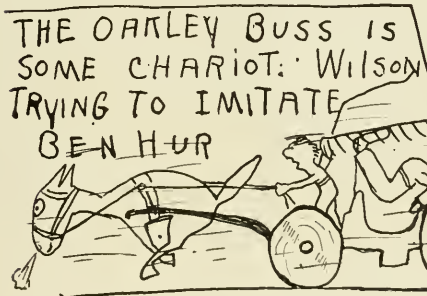 THE OAKLEY BUSS IS
SOME CHARIOT: WILSON
TRYING TO IMITATE
BEN HUR